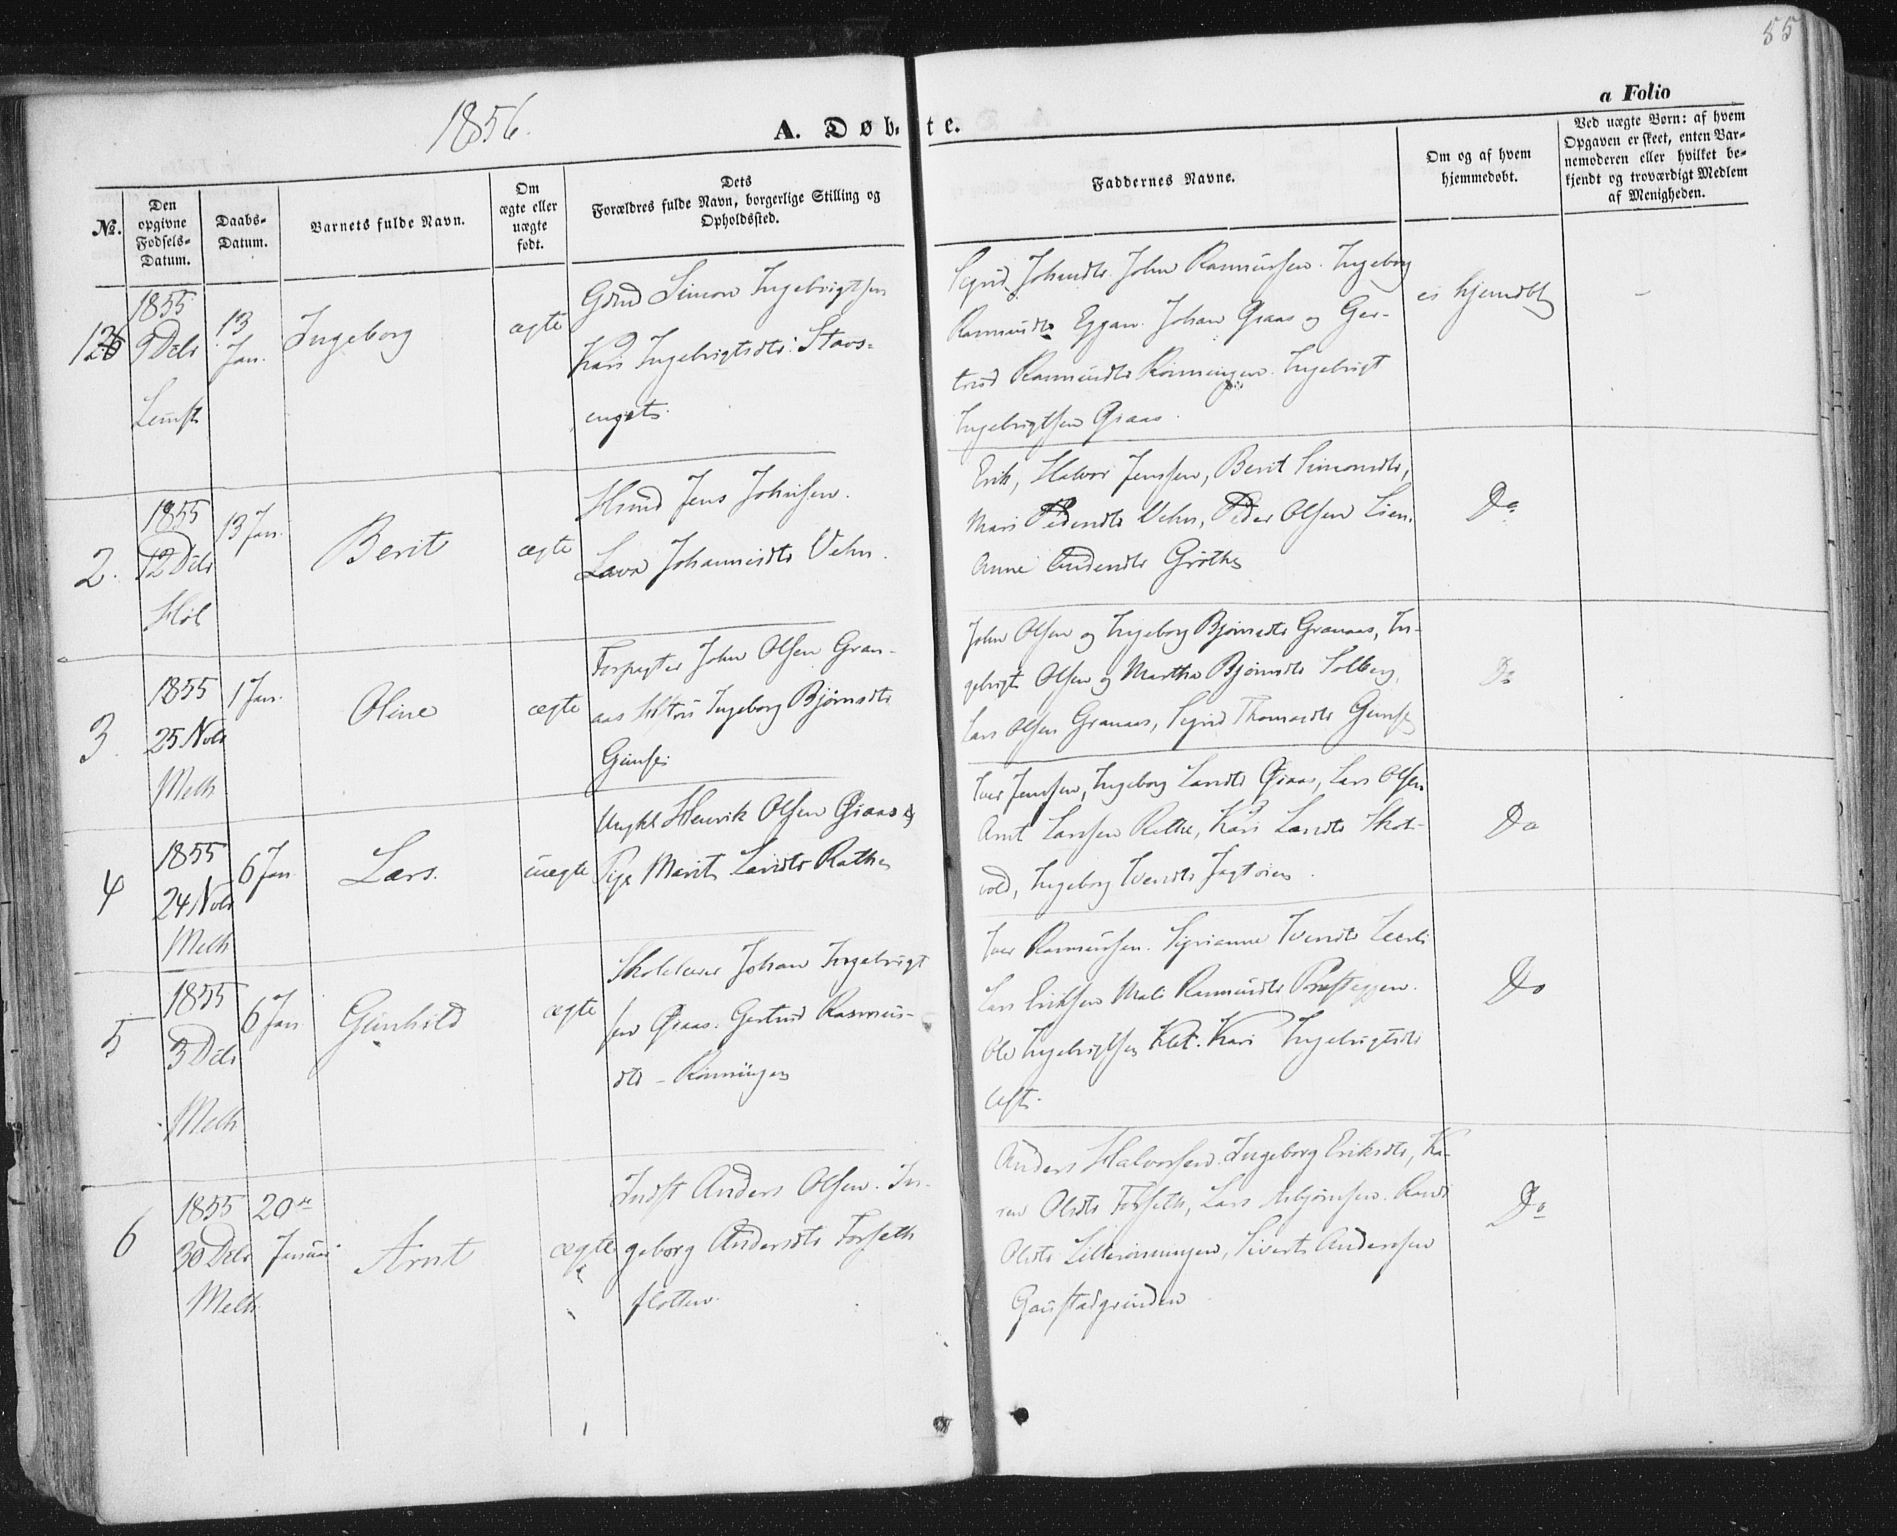 55
1856.
A. Døbte.
a Folio
No.
Den opgivne Fødsels-Datum.
Daabs-Datum.
Barnets fulde Navn.
Om ægte eller uægte født.
Dets Forældres fulde Navn, borgerlige Stilling og Opholdssted.
Faddernes Navne.
Om og af hvem hjemmedøbt.
Ved uægte Børn: af hvem Opgaven er skeet, enten Barnemoderen eller hvilket bekjendt og troværdigt Medlem af Menigheden.
1855
13 Jan.
Ingeborg
ægte
Simon Ingebrigtsen
Kari Ingebrigtsdtr.
Sigrid Johnsdtr. John Rasmussen. Ingeborg
Rasmusdtr Eggan. Johan Øiaas og Ger-
trud Rasmusdtr Rønningen. Ingebrigt
Ingebrigtsen Øiaas.
ei hjemdbt
2.
1855
12 Dcbr
Høl
13 Jan.
Berit
ægte
Hsmd Jens Johnsen.
Johannesdtr Vehn.
Erik, Halvor Jenssen, Berit Simonsdtr,
Mari Pedersdtr Vehn, Peder Olsen Lien.
Anne Andersdtr Grøthe
Do
3.
1855
25 Novbr
Melh
1 Jan.
Oline
ægte
Forpagter John Olsen Gran-
aas Hstru Ingeborg Bjørnsdtr
Gimse
John Olsen og Ingeborg Bjørnsdtr Granaas, In-
gebrigt Olsen og Martha Bjørnsdtr Solberg,
Lars Olsen Granaas, Sigrid Thomasdtr Gimse
Do
4
1855
24 Novbr
Melh
6 Jan.
Lars.
uægte
Ungkl Henrik Olsen Øiaas &
Pige Marit Larsdtr Rathe
Iver Jenssen, Ingeborg Larsdtr Øiaas, Lars Olsen
Arnt Larssen Rathe, Kari Larsdtr Skot-
vold, Ingeborg Iversdtr Jagtøien.
Do
5
1855
3 Dcbr
Melh
6 Jan
Gunhild
ægte
Skolelærer Johan Ingebrigt
sen Øiaas. Gertrud Rasmus-
dtr – Rønningen
Iver Rasmussen. Sigrianne Iversdtr
Lars Eriksen Mali Rasmusdtr Præsteggen.
Ole Ingebrigtsen Klet. Kari Ingebrigtsdtr
Do
6
1855
30 Dcbr
Melh
20de
Januar
Arnt
ægte
Indst Anders Olsen. In-
geborg Andersdtr Forseth
flotten.
Anders Halvorsen. Ingeborg Eriksdtr, Ka-
ren Olsdtr Forseth, Lars Asbjørnsen. Randi
Olsdtr Lillerønningen, Sivert Anderssen
Gaustadgrunden
Do